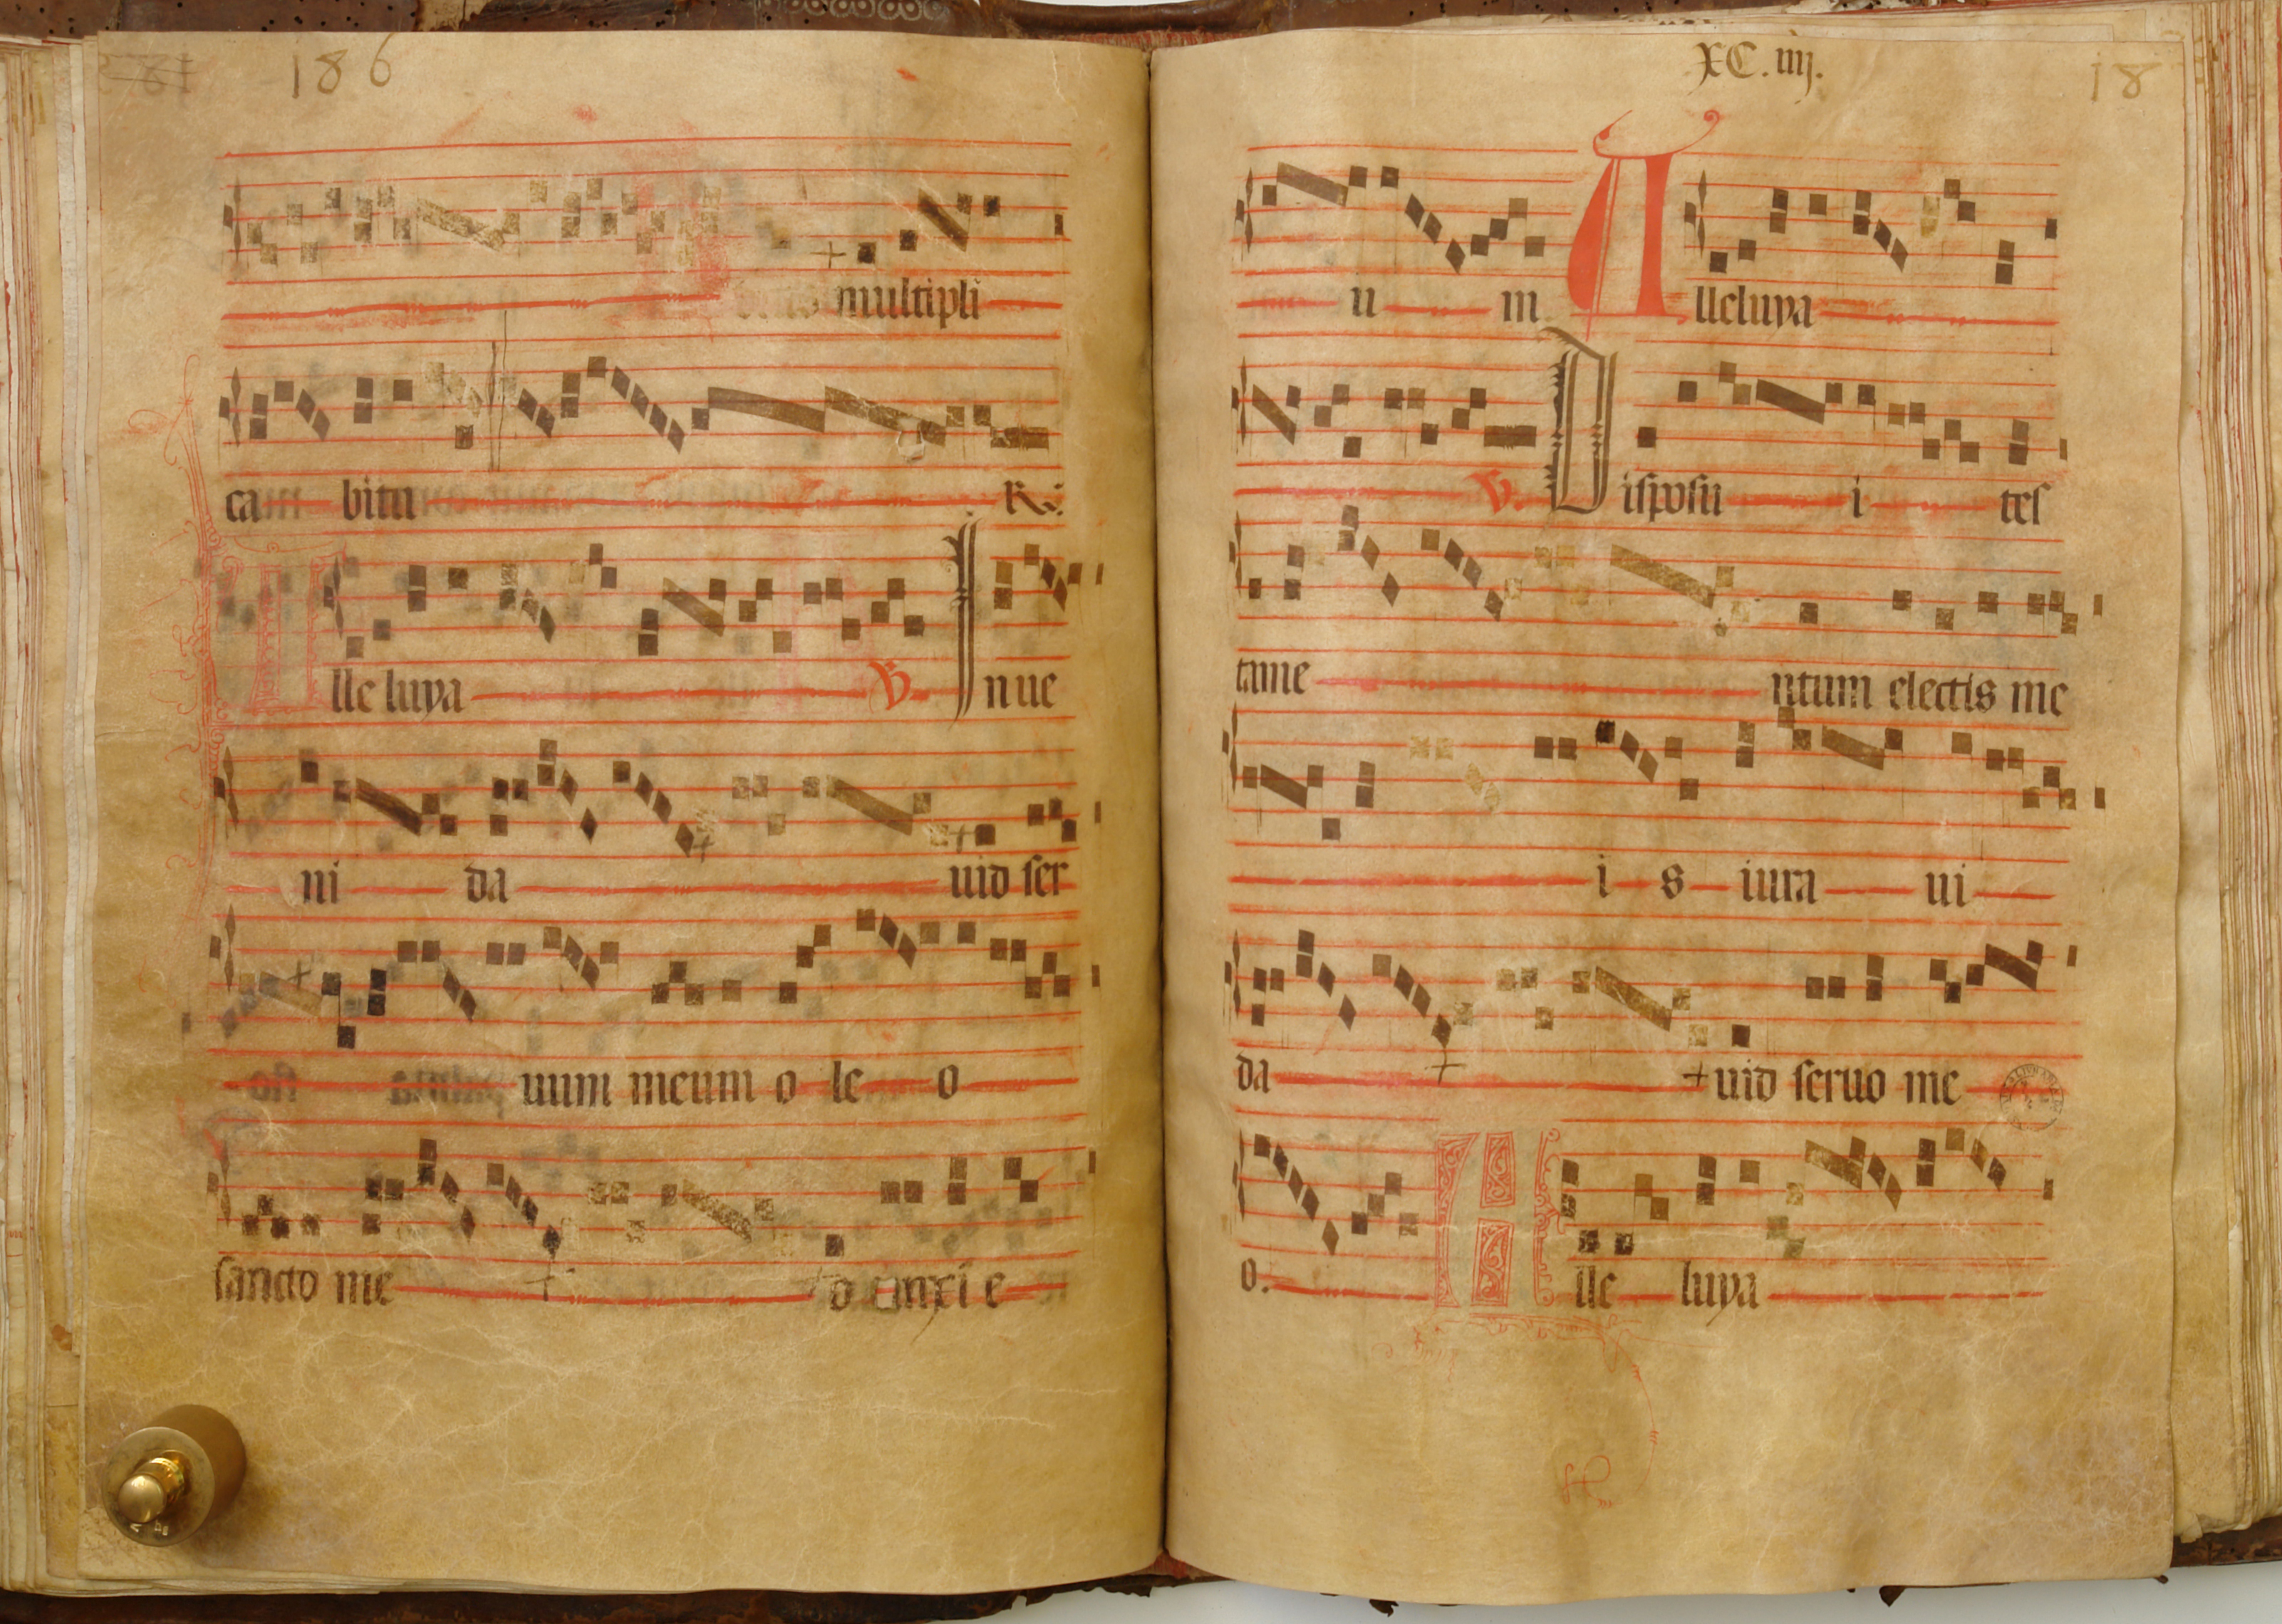 186
multipli
ca bitu R.
lle luya V. Inue
ni da uid ser
uum meum o le o
sancto me o unxi e
XC.iiij.
18
u m Alleluya
V. Disposu i tes
tame ntum electis me
i s iura ui
da uid seruo me
o. Alle luya